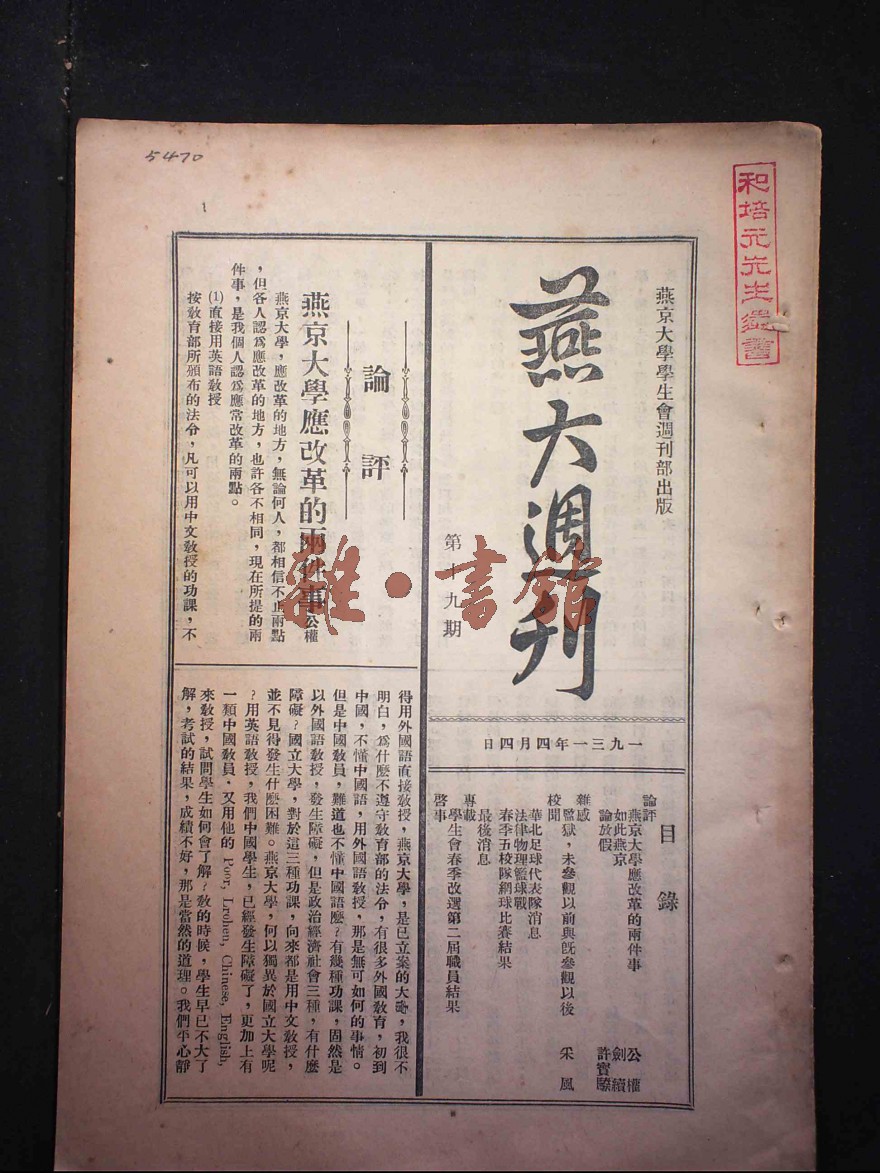 5470
和培元先生遺書
燕京大學學生會週刊部出版
燕大週刊
第十九期
一九三一年四月四日
目錄
論評
燕京大學應改革的兩件事 公權
如此燕京 劍續
論放假 許寶騤
雜感
監獄，未參觀以前與旣參觀以後 采風
校聞
華北足球代表隊消息
法律物理籃球戰
春季五校隊網球比賽結果
最後消息
專載
學生會春季改選第二屆職員結果
啓事
論評
燕京大學應改革的兩件事 公權
燕京大學，應改革的地方，無論何人，都相信不止兩點
，但各人認爲應改革的地方，也許各不相同，現在所提的兩
件事，是我個人認爲應當改革的兩點。
(1)直接用英語敎授
按敎育部所頒布的法令，凡可以用中文敎授的功課，不
得用外國語直接敎授，燕京大學，是已立案的大學，我很不
明白，爲什麽不遵守敎育部的法令，有很多外國敎育，初到
中國，不懂中國語，用外國語敎授，那是無可如何的事情。
但是中國敎員，難道也不懂中國語麽？有幾種功課，固然是
以外國語敎授，發生障礙，但是政治經濟社會三種，有什麽
障礙？國立大學，對於這三種功課，向來都是用中文敎授，
並不見得發生什麽困難。燕京大學，何以獨異於國立大學呢
？用英語敎授，我們中國學生，已經發生障礙了，更加上有
一類中國敎員，又用他的 Poor, Lrohen, Chinese, English,
來敎授，試問學生如何會了解？敎的時候，學生早已不大了
解，考試的結果，成績不好，那是當然的道理。我們平心靜
雜·書館